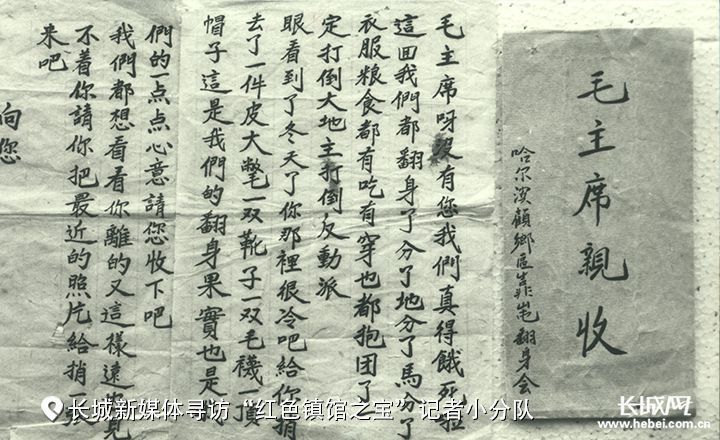 毛主席親收
哈尔濱顧鄉區屯翻身會
毛主席呀没有您我們真得餓死啦
這回我們都翻身了分了地分了馬分了
衣服粮食都有吃有穿也都抱团了
定打倒大地主打倒反動派
眼看到了冬天了你那裡很冷吧給你捎
去了一件皮大氅一双靴子一双毛襪一頂
帽子這是我們的翻身果實也是我
們的一点点心意請您收下吧
我們都想看看你離的又這樣遠見
不着你請你把最近的照片給捎
来吧
向您
长城新媒体寻访“红色镇馆之宝”记者小分队
长城网
www.hebei.com.cn